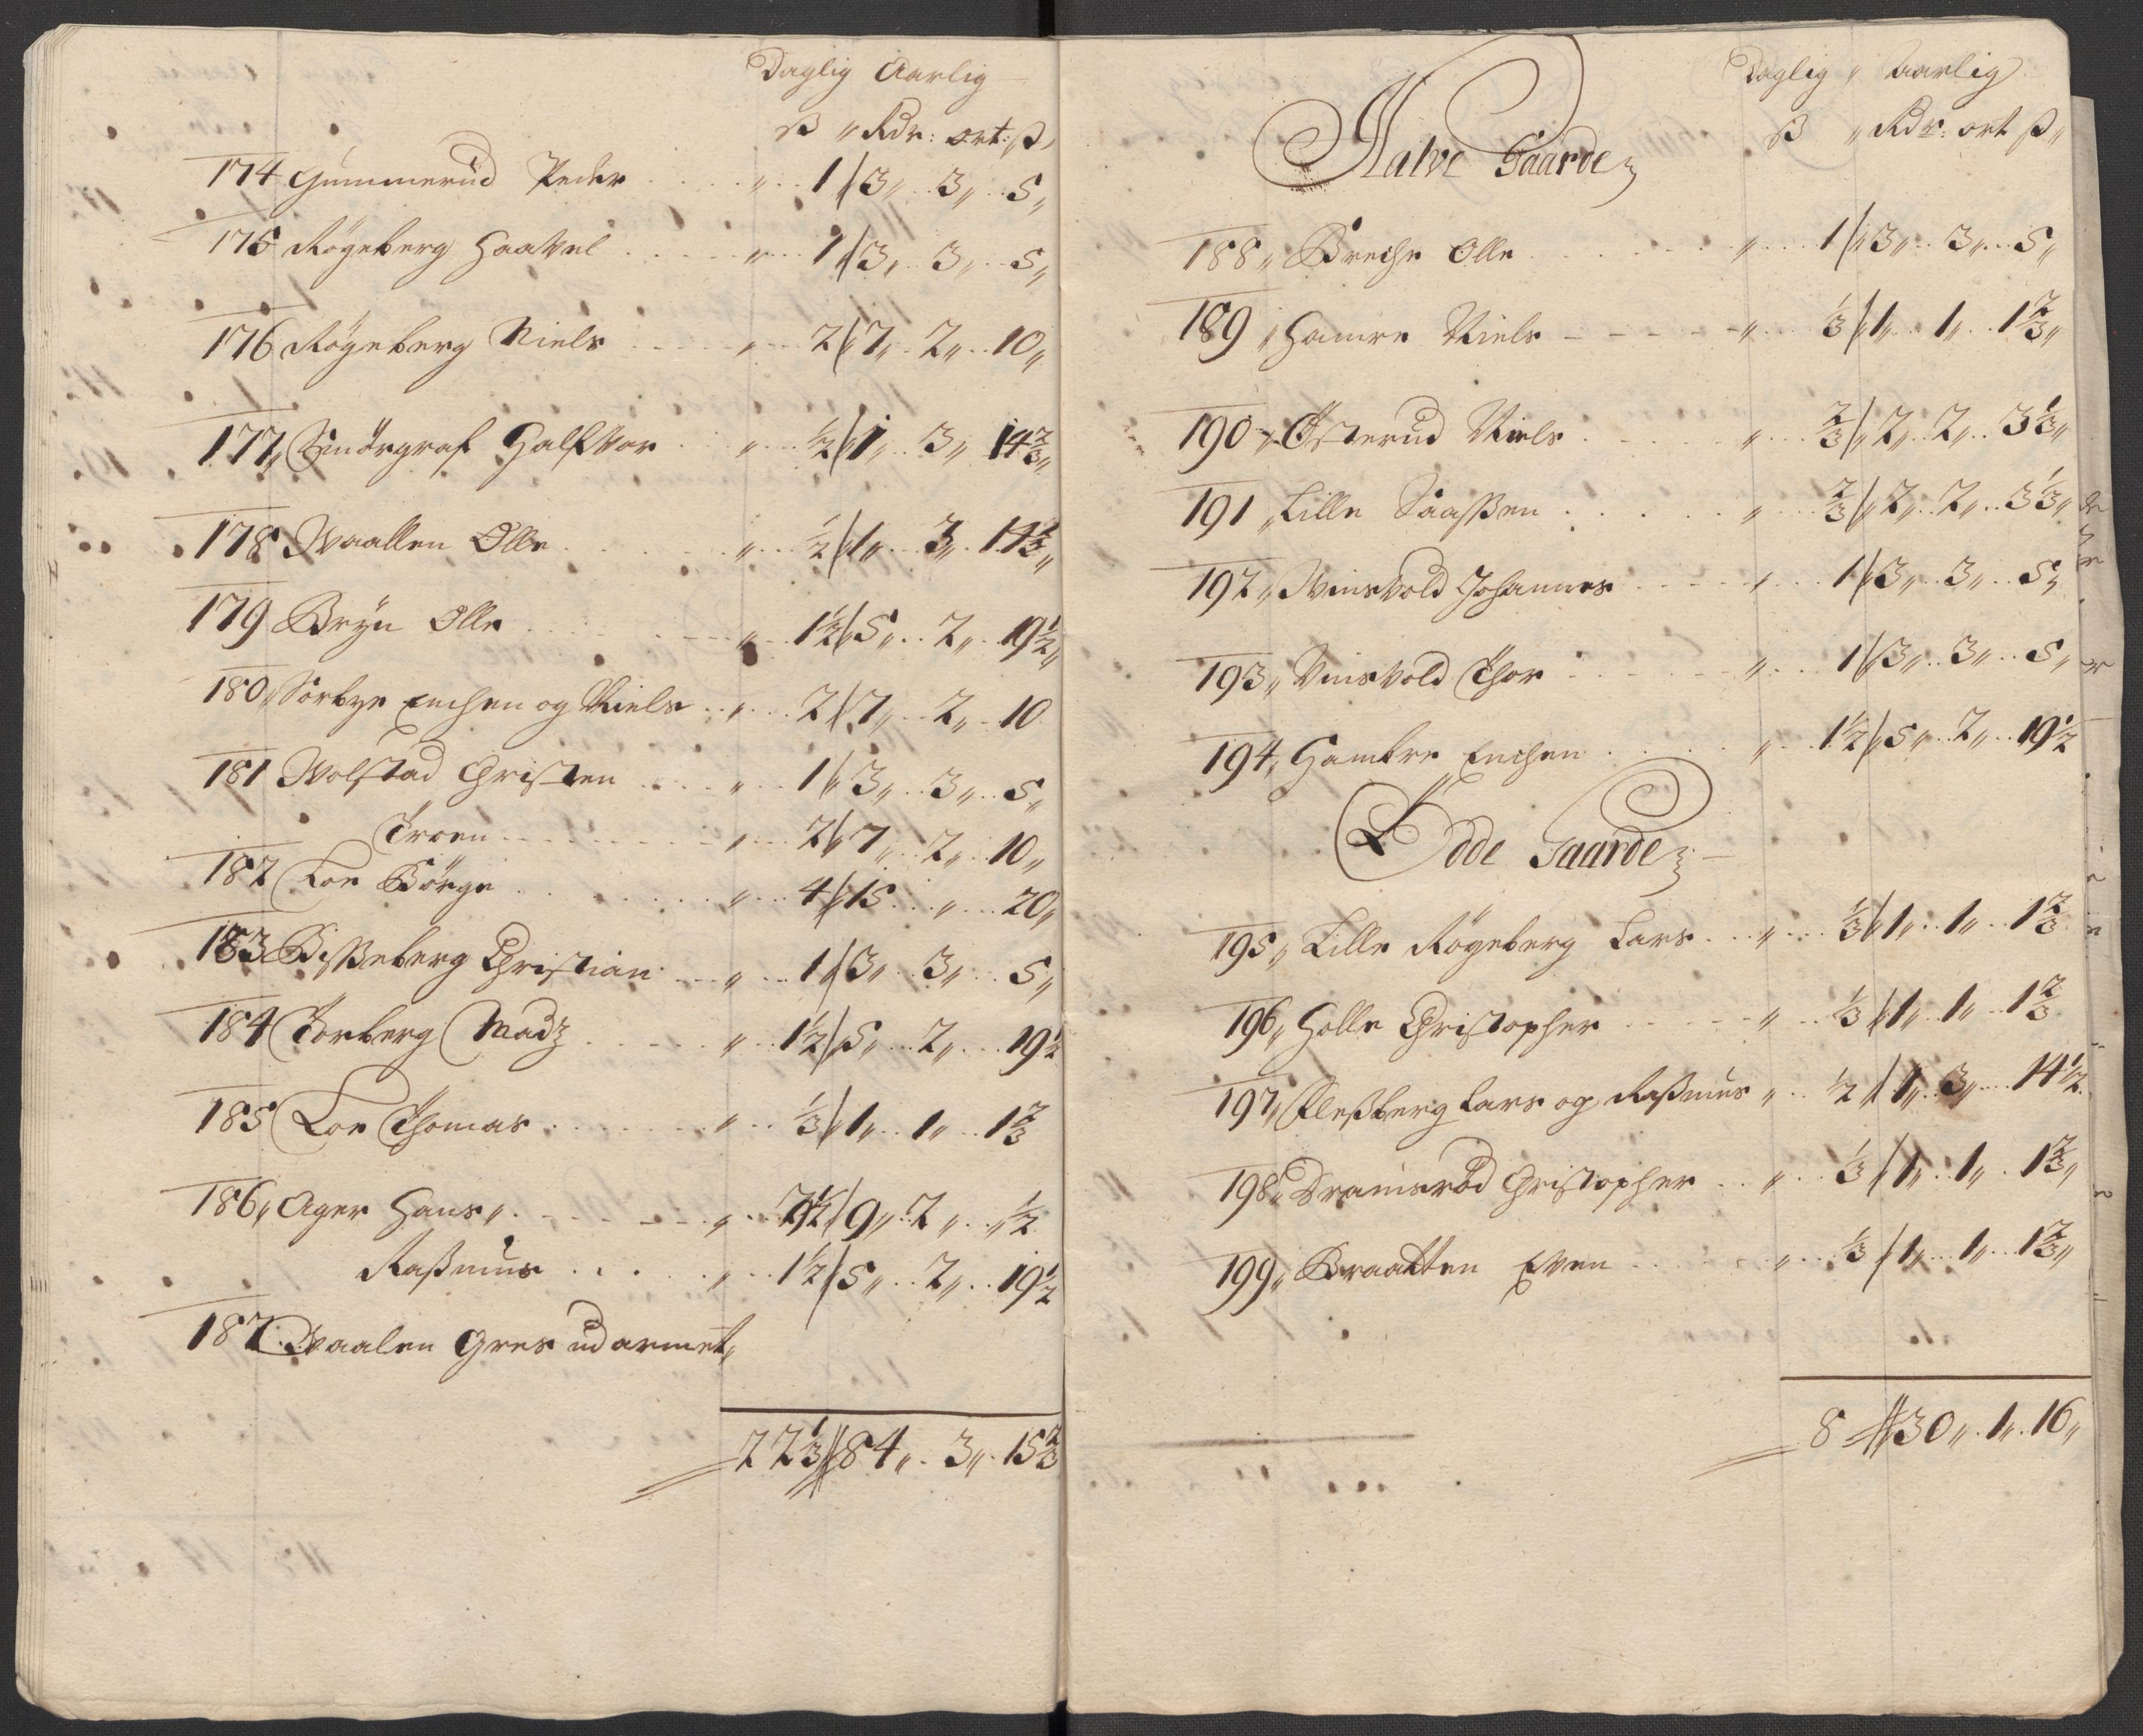 Daglig Aarlig
ß „ Rdr: ort: ß
174 Gummerud Peder „ 1 3 „ 3 „ 5 „
175 Rögeberg Haavel „ 1 3 „ 3 „ 5 „
176 Rögeberg Niels „ 2 7 „ 2 „ 10 „
177 „ Smörgraf Halfvor „ ½ 1 „ 3 „ 14⅔ „
178 Waallen Olle „ ½ 1 „ 3 „ 14½ „
179 Bryn Olle „ 1½ 5 „ 2 „ 19½ „
180 „ Sørbye Enchen og Niels „ 2 7 „ 2 „ 10
181 Wolstad Christen „ 1 3 „ 3 „ 5 „
Troen „ 2 7 „ 2 „ 10 „
182 Loe Börge „ 4 15 „ 20 „
183 Bisßeberg Christian „ 1 3 „ 3 „ 5 „
184 Torberg Madz „ 1½ 5 „ 2 „ 19½
185 Loe Thomas „ ⅓ 1 „ 1 „ 1⅔
186 „ Ager Hans „ „ 2½ 9 „ 2 „ „ ½
Raßmus „ 1½ 5 „ 2 „ 19½
187 Waalen Gres udarmet „
22⅓ 84 „ 3 „ 15⅔
Daglig „ Aarlig
ß „ Rdr: ort ß „
Halve Gaarde
188 „ Breche Olle „ 1 3 „ 3 „ 5 „
189 „ Hamre Niels „ ⅓ 1 „ 1 „ 1⅔ „
190 „ Østerud Niels „ ⅔ 2 „ 2 „ 3⅓ „
191 „ Lille Saaßen „ ⅔ 2 „ 2 „ 3⅓ „
192 „ Winsvold Johannes „ 1 3 „ 3 „ 5 „
193 „ Vinsvold Thor „ 1 3 „ 3 „ 5 „
194 „ Hambre Enchen „ 1½ 5 „ 2 „ 19½
Ödde Gaarde
195 „ Lille Rögeberg Lars „ ⅓ 1 „ 1 „ 1⅔
196 „ Holle Christopher „ ⅓ 1 „ 1 „ 1⅔
197 „ Fleßberg Lars og Raßmus „ ½ 1 „ 3 „ 14½
198 „ Dramsrød Christopher „ ⅓ 1 „ 1 „ 1⅔ „
199 „ Braatten Even „ ⅓ 1 „ 1 „ 1⅔ „
8 30 „ 1 „ 16 „